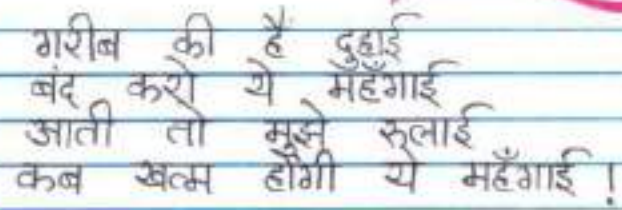 गरीब की है दुहाई
बंद करो ये महँगाई
आती तो मुझे रूलाई
कब खत्म होगी ये महँगाई !